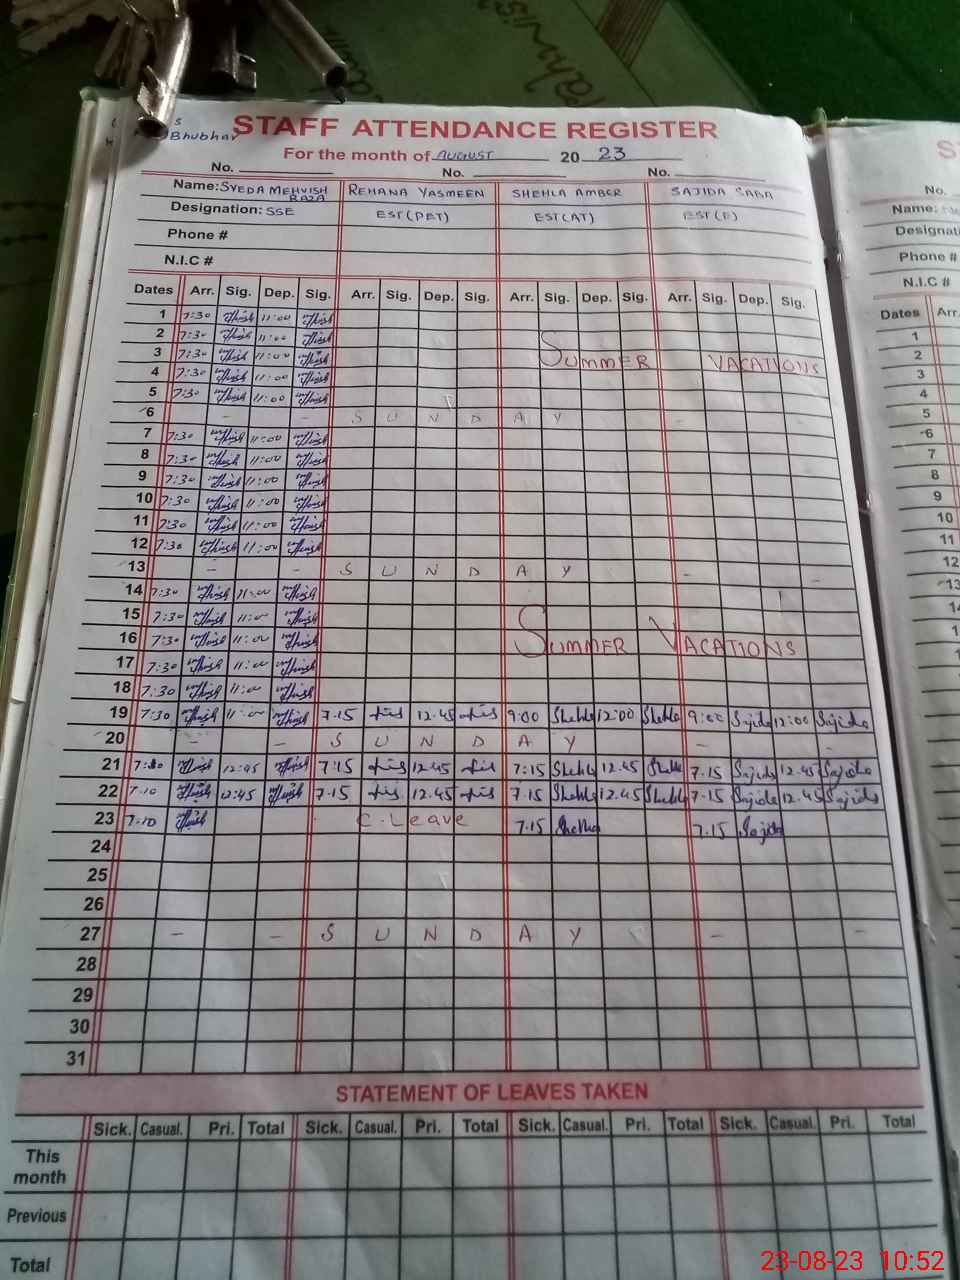 Bhubhar
STAFF ATTENDANCE REGISTER
For the month of AUGUST 20 23
No. No. No.
Name: SYEDA MEHVISH RAZA REHANA YASMEEN SHEHLA AMBER SAJIDA SABA
Designation: SSE EST(PET) EST(AT) EST(E)
Phone #
N.I.C #
Dates Arr. Sig. Dep. Sig. Arr. Sig. Dep. Sig. Arr. Sig. Dep. Sig. Arr. Sig. Dep. Sig.
1 7:30 11:00
2 7:30 11:00
3 7:30 11:00 SUMMER VACATIONS
4 7:30 11:00
5 7:30 11:00
6 - - SUNDAY - -
7 7:30 11:00
8 7:30 11:00
9 7:30 11:00
10 7:30 11:00
11 7:30 11:00
12 7:30 11:00
13 - - SUNDAY - -
14 7:30 11:00
15 7:30 11:00
16 7:30 11:00 SUMMER VACATIONS
17 7:30 11:00
18 7:30 11:00
19 7:30 11:00 7.15 12.45 9:00 Shehla 12:00 Shehla 9:00 Sajida 12:00 Sajida
20 - - SUNDAY - -
21 12:45 7:15 12.45 7:15 Shehla 12.45 Shehla 7.15 Sajida 12.45 Sajida
22 7.10 12:45 7.15 12.45 7.15 Shehla 12.45 Shehla 7.15 Sajida 12.45 Sajida
23 7.10 C.Leave 7.15 Shehla 7.15 Sajida
24
25
26
27 - - SUNDAY - -
28
29
30
31
STATEMENT OF LEAVES TAKEN
Sick. Casual. Pri. Total Sick. Casual. Pri. Total Sick. Casual. Pri. Total Sick. Casual. Pri. Total
This month
Previous
Total
No.
Name:
Designati
Phone #
N.I.C #
Dates Arr.
1
2
3
4
5
6
7
8
9
10
11
12
13
23-08-23 10:52